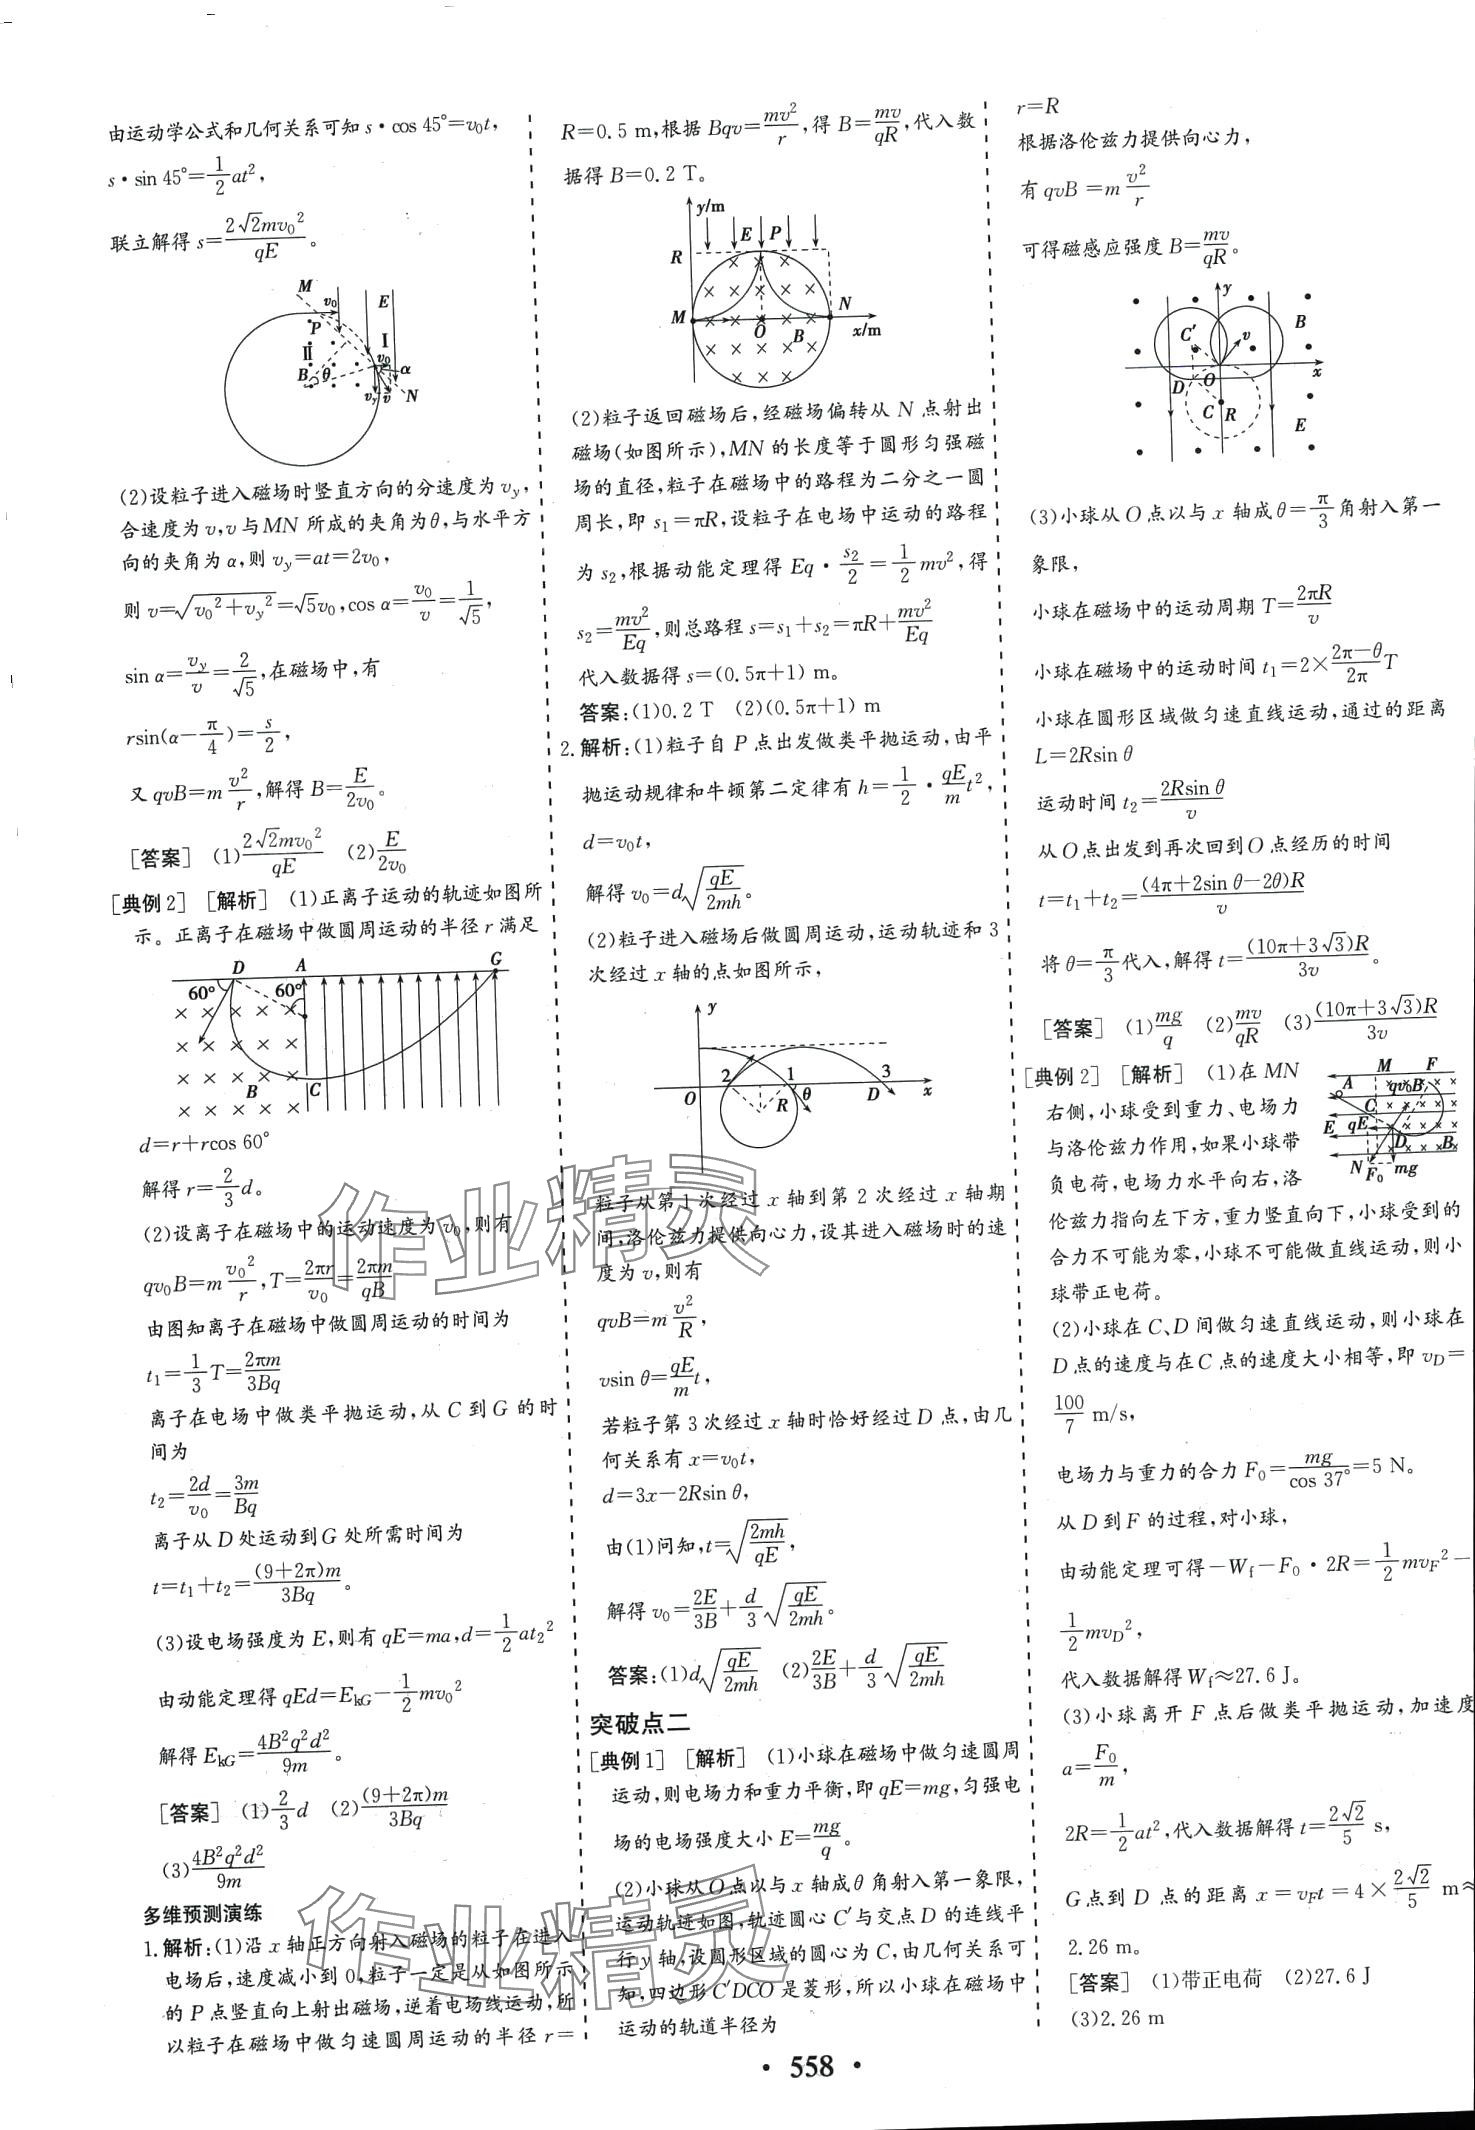 由运动学公式和几何关系可知 s·cos 45°=v₀t,
s·sin 45°=1/2 at²,
联立解得 s=2√2mv₀²/qE。
M
v₀
E
P
Ⅰ
Ⅱ
v₀
B
θ
α
v_y
v
N
(2)设粒子进入磁场时竖直方向的分速度为 v_y,
合速度为 v,v 与 MN 所成的夹角为 θ,与水平方
向的夹角为 α,则 v_y=at=2v₀,
则 v=√(v₀²+v_y²)=√5v₀,cos α=v₀/v=1/√5,
sin α=v_y/v=2/√5,在磁场中,有
rsin(α-π/4)=s/2,
又 qvB=m v²/r,解得 B=E/2v₀。
[答案] (1)2√2mv₀²/qE (2)E/2v₀
[典例 2] [解析] (1)正离子运动的轨迹如图所
示。正离子在磁场中做圆周运动的半径 r 满足
D A G
60° 60°
B C
d=r+rcos 60°
解得 r=2/3 d。
(2)设离子在磁场中的运动速度为 v₀,则有
qv₀B=m v₀²/r,T=2πr/v₀=2πm/qB
由图知离子在磁场中做圆周运动的时间为
t₁=1/3 T=2πm/3Bq
离子在电场中做类平抛运动,从 C 到 G 的时
间为
t₂=2d/v₀=3m/Bq
离子从 D 处运动到 G 处所需时间为
t=t₁+t₂=(9+2π)m/3Bq。
(3)设电场强度为 E,则有 qE=ma,d=1/2 at₂²
由动能定理得 qEd=E_kG-1/2 mv₀²
解得 E_kG=4B²q²d²/9m。
[答案] (1)2/3 d (2)(9+2π)m/3Bq
(3)4B²q²d²/9m
多维预测演练
1. 解析:(1)沿 x 轴正方向射入磁场的粒子在进入
电场后,速度减小到 0,粒子一定是从如图所示
的 P 点竖直向上射出磁场,逆着电场线运动,所
以粒子在磁场中做匀速圆周运动的半径 r=
R=0.5 m,根据 Bqv=mv²/r,得 B=mv/qR,代入数
据得 B=0.2 T。
y/m
E P
R
M
N
O
B
x/m
(2)粒子返回磁场后,经磁场偏转从 N 点射出
磁场(如图所示),MN 的长度等于圆形匀强磁
场的直径,粒子在磁场中的路程为二分之一圆
周长,即 s₁=πR,设粒子在电场中运动的路程
为 s₂,根据动能定理得 Eq·s₂/2=1/2 mv²,得
s₂=mv²/Eq,则总路程 s=s₁+s₂=πR+mv²/Eq
代入数据得 s=(0.5π+1) m。
答案:(1)0.2 T (2)(0.5π+1) m
2. 解析:(1)粒子自 P 点出发做类平抛运动,由平
抛运动规律和牛顿第二定律有 h=1/2·qE/m t²,
d=v₀t,
解得 v₀=d√(qE/2mh)。
(2)粒子进入磁场后做圆周运动,运动轨迹和 3
次经过 x 轴的点如图所示,
y
2 1 3
O R θ D x
粒子从第 1 次经过 x 轴到第 2 次经过 x 轴期
间,洛伦兹力提供向心力,设其进入磁场时的速
度为 v,则有
qvB=m v²/R,
vsin θ=qE/m t,
若粒子第 3 次经过 x 轴时恰好经过 D 点,由几
何关系有 x=v₀t,
d=3x-2Rsin θ,
由(1)问知,t=√(2mh/qE),
解得 v₀=2E/3B+d/3√(qE/2mh)。
答案:(1)d√(qE/2mh) (2)2E/3B+d/3√(qE/2mh)
突破点二
[典例 1] [解析] (1)小球在磁场中做匀速圆周
运动,则电场力和重力平衡,即 qE=mg,匀强电
场的电场强度大小 E=mg/q。
(2)小球从 O 点以与 x 轴成 θ 角射入第一象限,
运动轨迹如图,轨迹圆心 C′与交点 D 的连线平
行 y 轴,设圆形区域的圆心为 C,由几何关系可
知,四边形 C′DCO 是菱形,所以小球在磁场中
运动的轨道半径为
r=R
根据洛伦兹力提供向心力,
有 qvB=m v²/r
可得磁感应强度 B=mv/qR。
y
B
C′
v
D O x
C R
E
(3)小球从 O 点以与 x 轴成 θ=π/3 角射入第一
象限,
小球在磁场中的运动周期 T=2πR/v
小球在磁场中的运动时间 t₁=2×(2π-θ)/2π T
小球在圆形区域做匀速直线运动,通过的距离
L=2Rsin θ
运动时间 t₂=2Rsin θ/v
从 O 点出发到再次回到 O 点经历的时间
t=t₁+t₂=(4π+2sin θ-2θ)R/v
将 θ=π/3 代入,解得 t=(10π+3√3)R/3v。
[答案] (1)mg/q (2)mv/qR (3)(10π+3√3)R/3v
[典例 2] [解析] (1)在 MN
右侧,小球受到重力、电场力
与洛伦兹力作用,如果小球带
负电荷,电场力水平向右,洛
伦兹力指向左下方,重力竖直向下,小球受到的
合力不可能为零,小球不可能做直线运动,则小
球带正电荷。
M F
A qvB
C
E qE
D B
N F₀ mg
(2)小球在 C、D 间做匀速直线运动,则小球在
D 点的速度与在 C 点的速度大小相等,即 v_D=
100/7 m/s,
电场力与重力的合力 F₀=mg/cos 37°=5 N。
从 D 到 F 的过程,对小球,
由动能定理可得-W_f-F₀·2R=1/2 mv_F²-
1/2 mv_D²,
代入数据解得 W_f≈27.6 J。
(3)小球离开 F 点后做类平抛运动,加速度
a=F₀/m,
2R=1/2 at²,代入数据解得 t=2√2/5 s,
G 点到 D 点的距离 x=v_Ft=4×2√2/5 m≈
2.26 m。
[答案] (1)带正电荷 (2)27.6 J
(3)2.26 m
作业精灵
作业精灵
· 558 ·